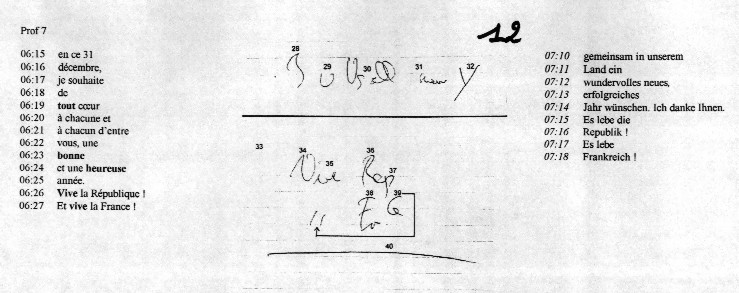 Prof 7
12
06:15 en ce 31
06:16 décembre,
06:17 je souhaite
06:18 de
06:19 tout cœur
06:20 à chacune et
06:21 à chacun d'entre
06:22 vous, une
06:23 bonne
06:24 et une heureuse
06:25 année.
06:26 Vive la République !
06:27 Et vive la France !
28 29 30 31 32
y
33 34 35 36
Vive Rep
37
38 39
"
40
07:10 gemeinsam in unserem
07:11 Land ein
07:12 wundervolles neues,
07:13 erfolgreiches
07:14 Jahr wünschen. Ich danke Ihnen.
07:15 Es lebe die
07:16 Republik !
07:17 Es lebe
07:18 Frankreich !